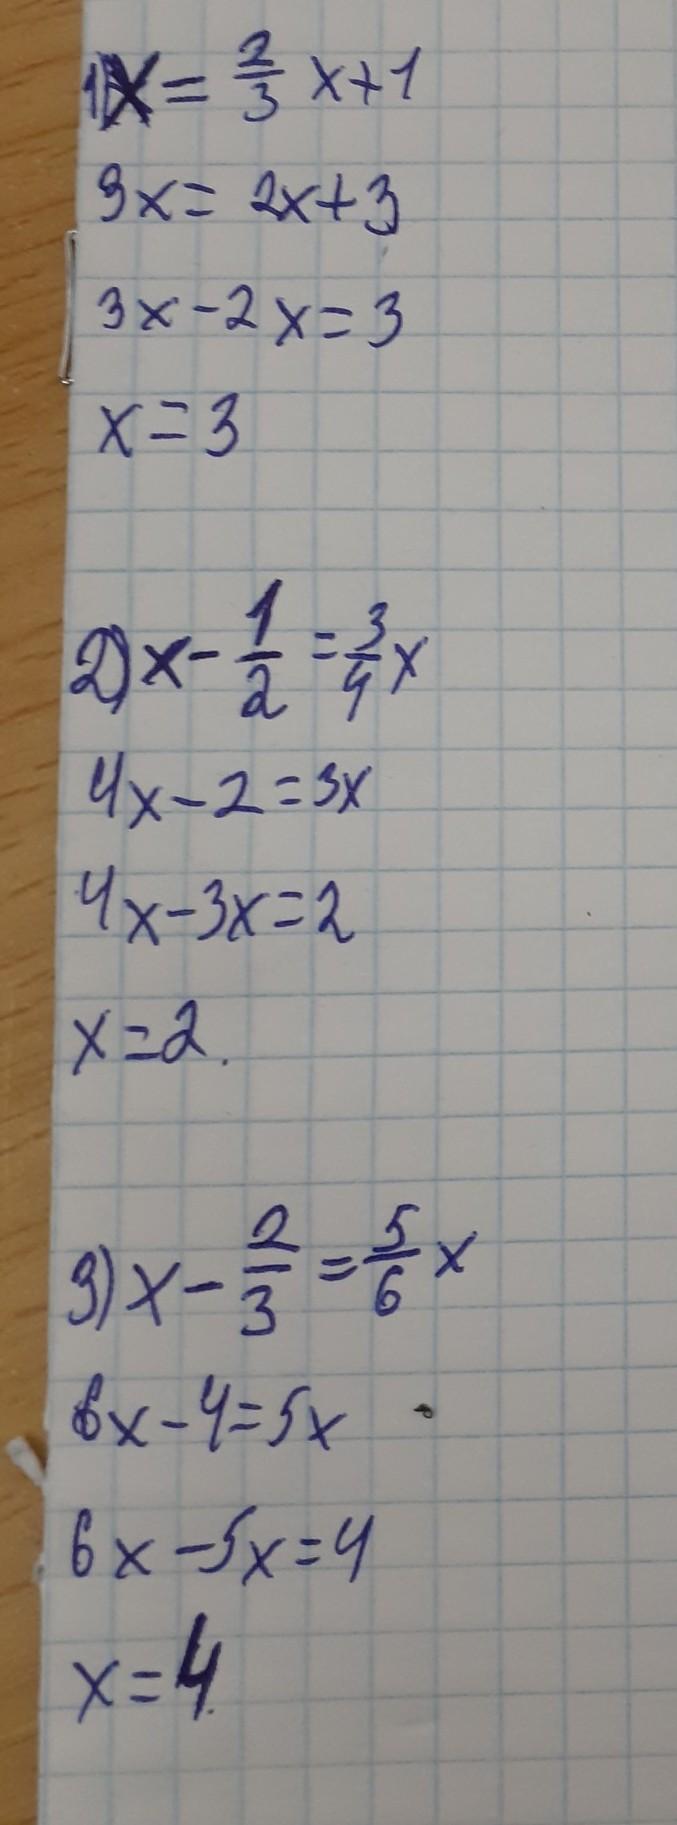 1) x = 2/3 x + 1
3x = 2x + 3
3x - 2x = 3
x = 3
2) x - 1/2 = 3/4 x
4x - 2 = 3x
4x - 3x = 2
x = 2.
3) x - 2/3 = 5/6 x
6x - 4 = 5x
6x - 5x = 4
x = 4.